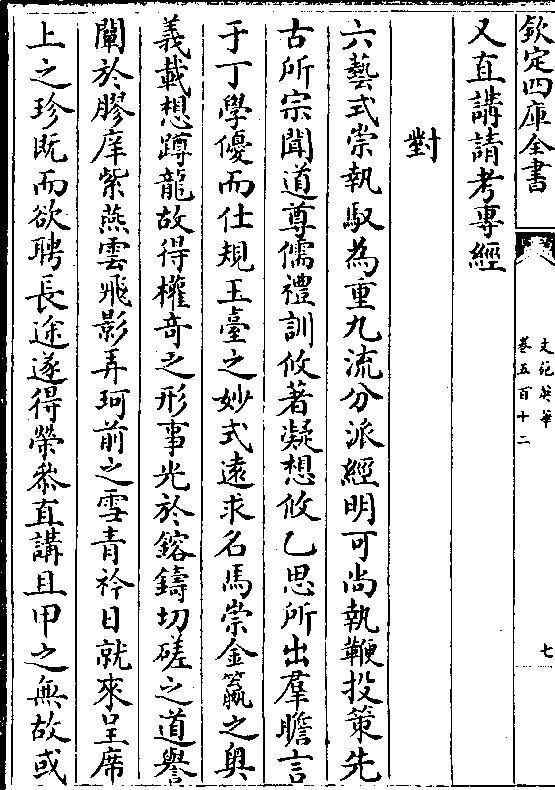 欽定四庫全書
文苑英華
卷五百十二
七
又直講請考專經
對
六藝式崇執馭為重九流分派經明可尚執鞭投策先
古所宗聞道尊儒禮訓攸著凝想攸乙思所出羣瞻言
于丁學優而仕規玉臺之妙式遠求名馬崇金籯之奥
義載想蹲龍故得權竒之形事光於鎔鑄切磋之道譽
闡於膠庠紫燕雲飛影弄珂前之雪青衿日就來呈席
上之珍既而欲聘長途遂得榮忝直講且甲之無故或